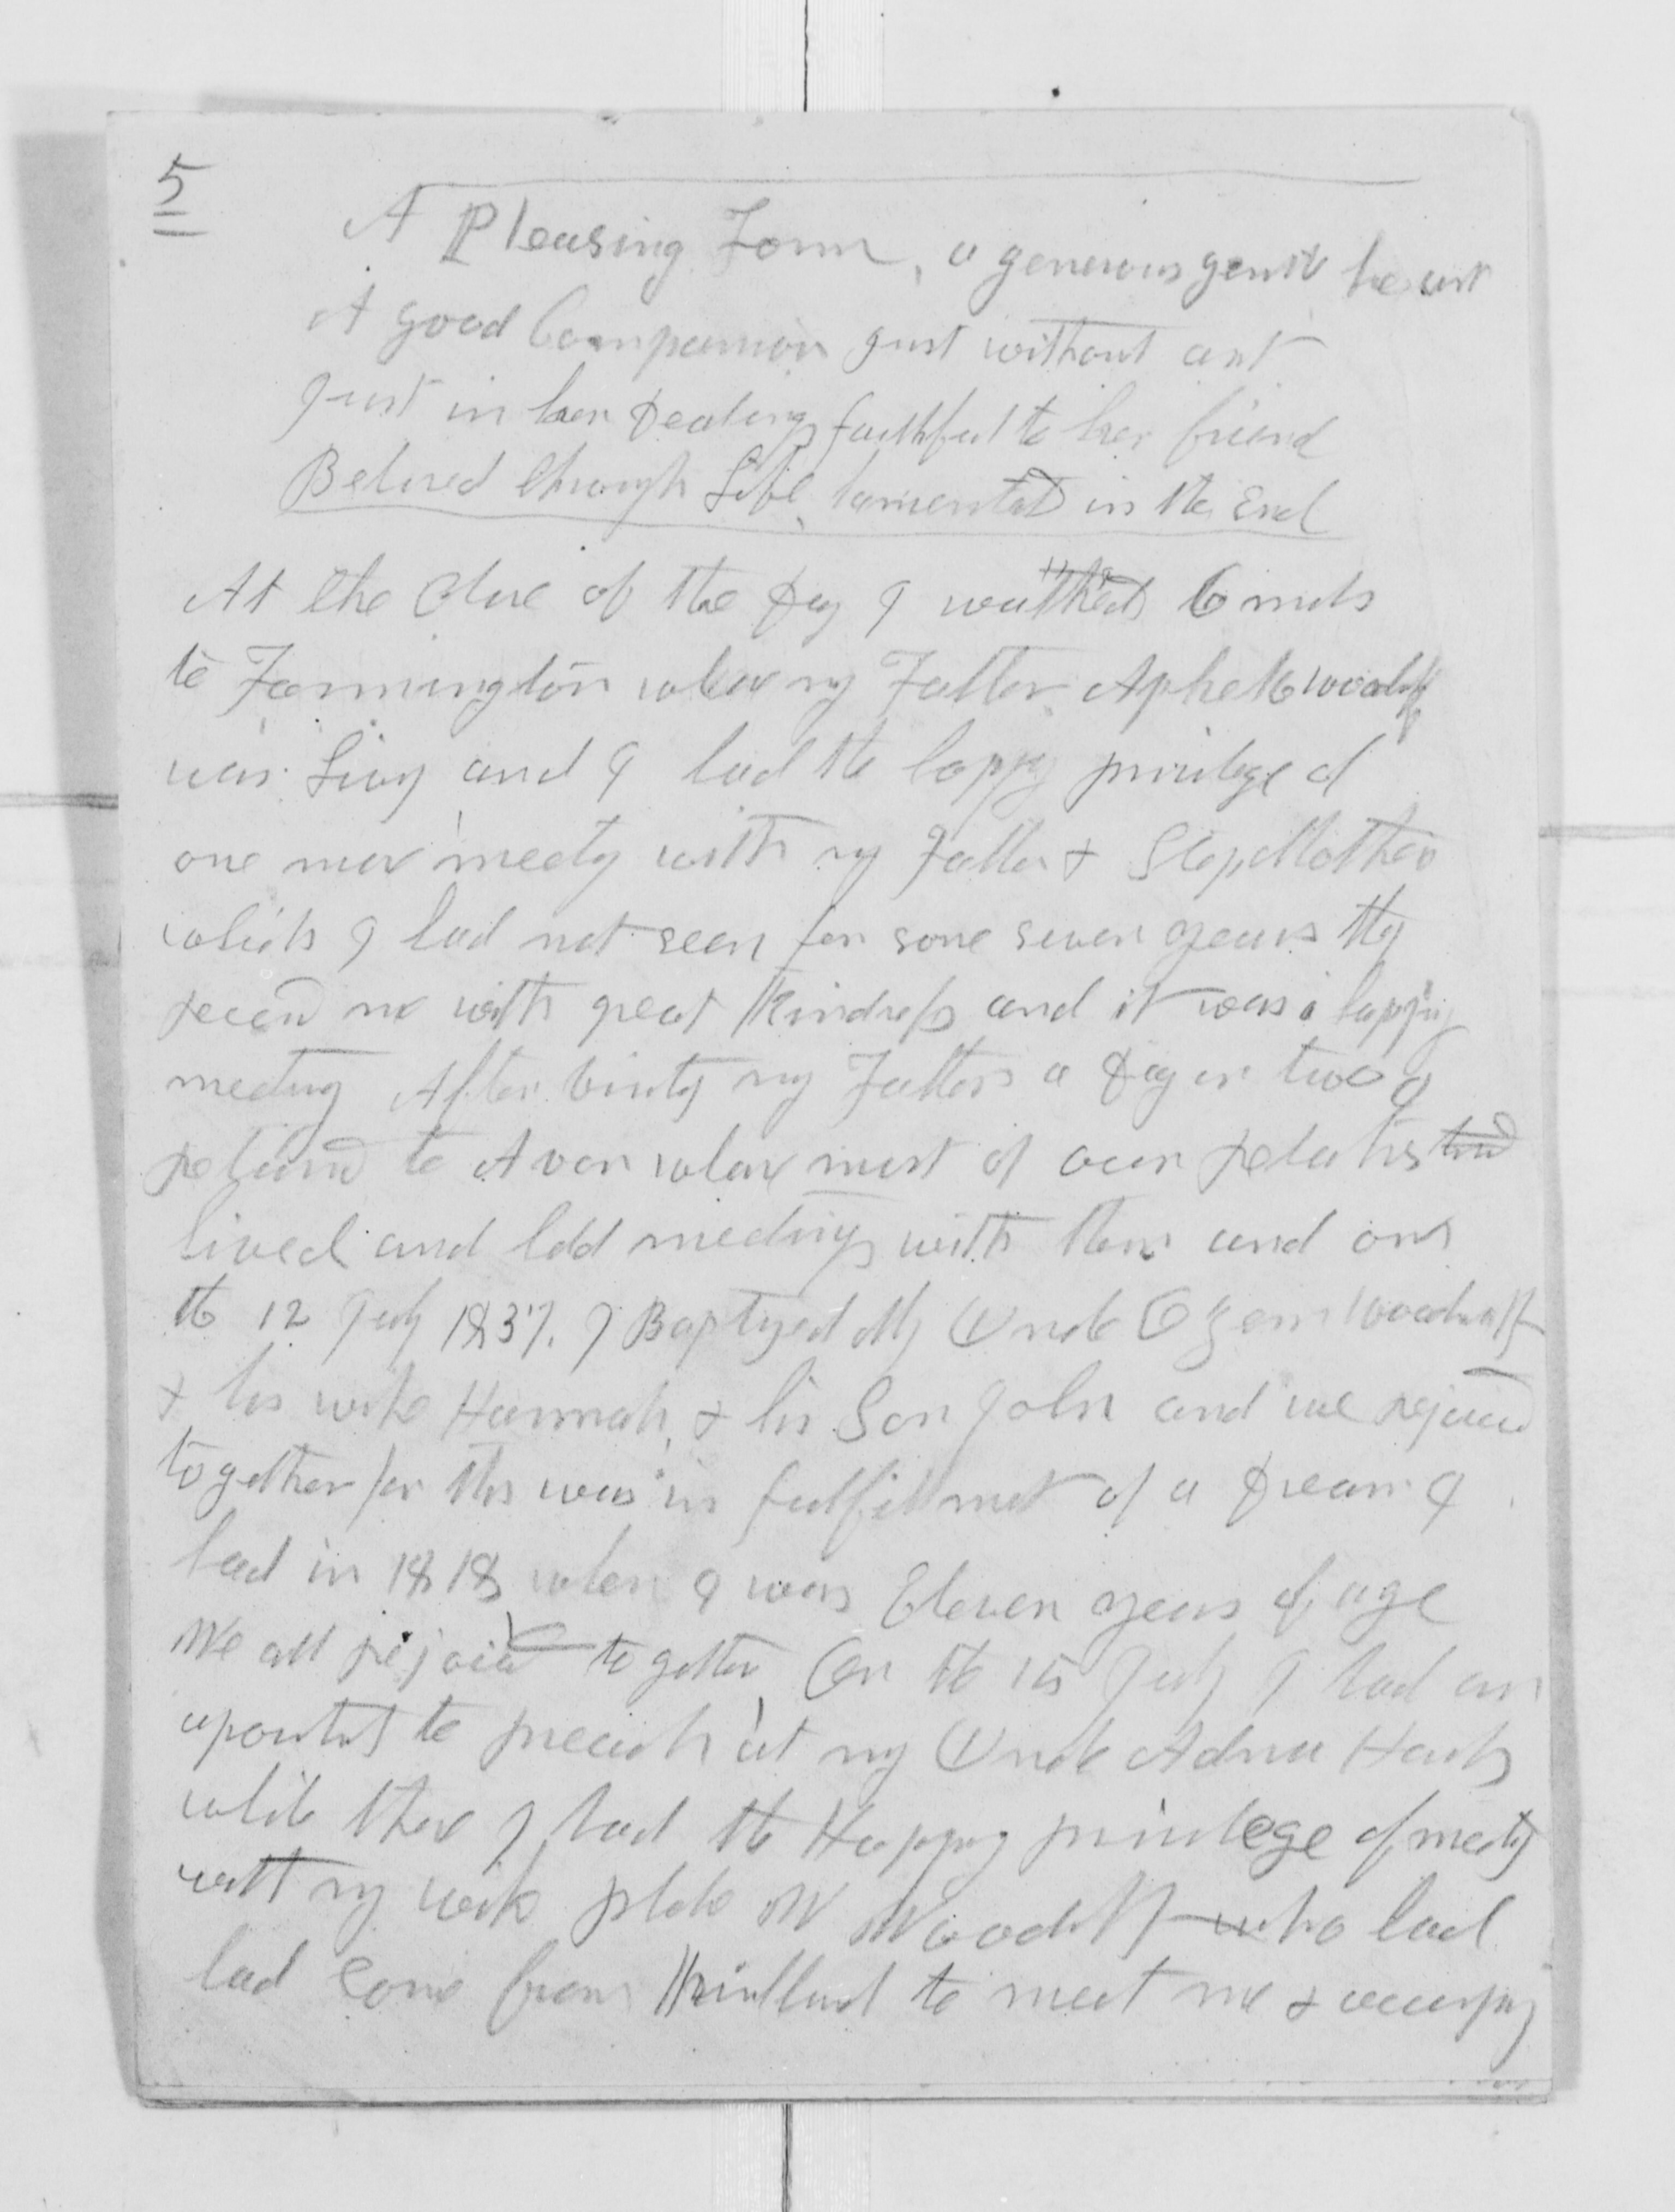 5
A Pleasing Form, a generous gentle heart
A good Companion just without art
Just in her Dealings faithful to her friend
Beloved through Life, lamented in the End
At the Close of the Day I walked 6 miles
to Farmington whare my Father Aphek Woodruff
was Living and I had the happy privilege of
one more meeting with my Father & StepMother
which I had not seen for some seven years they
receivd me with great Kindness and it was a happy
meeting After visiting my Fathers a Day or two I
returnd to Avon whare most of our relatives had
lived and held meetings with them and on
the 12 July 1837. I Baptized My Uncle Ozem Woodruff
& his wife Hannah, & his Son John and we rejoiced
together for this was in fulfillment of a Dream I
had in 1818 when I was Eleven years of age
We all rejoiced together On the 15 July I had an
apointmet to preach at my Uncle Adna Harts
while thare I had the Happy privilege of meeting
with my wife Phebe W Woodruff who had
had come from to meet me & accompany